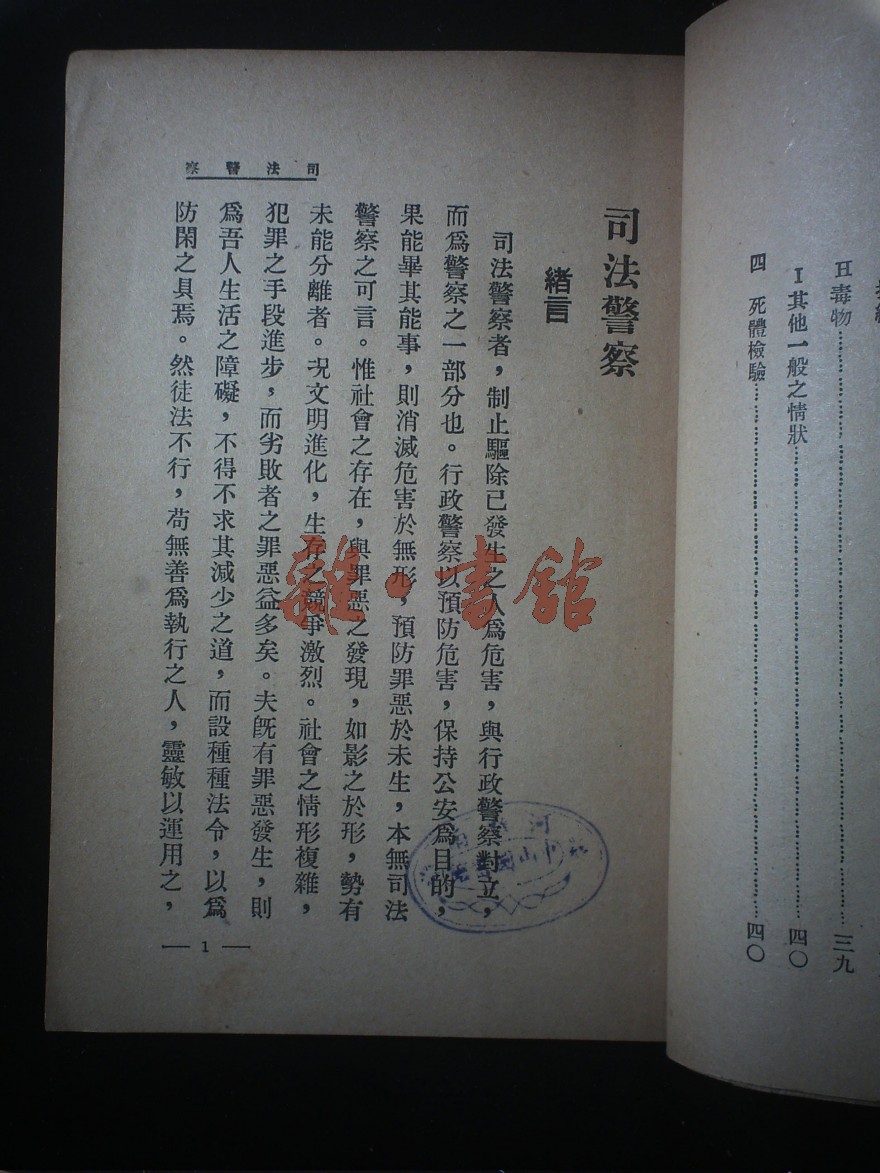 H毒物 三九
I其他一般之情狀 四〇
四 死體檢驗 四〇
司法警察
司法警察
緒言
司法警察者，制止驅除已發生之人爲危害，與行政警察對立，
而爲警察之一部分也。行政警察以預防危害，保持公安爲目的，
果能畢其能事，則消滅危害於無形，預防罪惡於未生，本無司法
警察之可言。惟社會之存在，與罪惡之發現，如影之於形，勢有
未能分離者。況文明進化，生存之競爭激烈。社會之情形複雜，
犯罪之手段進步，而劣敗者之罪惡益多矣。夫旣有罪惡發生，則
爲吾人生活之障礙，不得不求其減少之道，而設種種法令，以爲
防閑之具焉。然徒法不行，苟無善爲執行之人，靈敏以運用之，
— 1 —
雜·書館